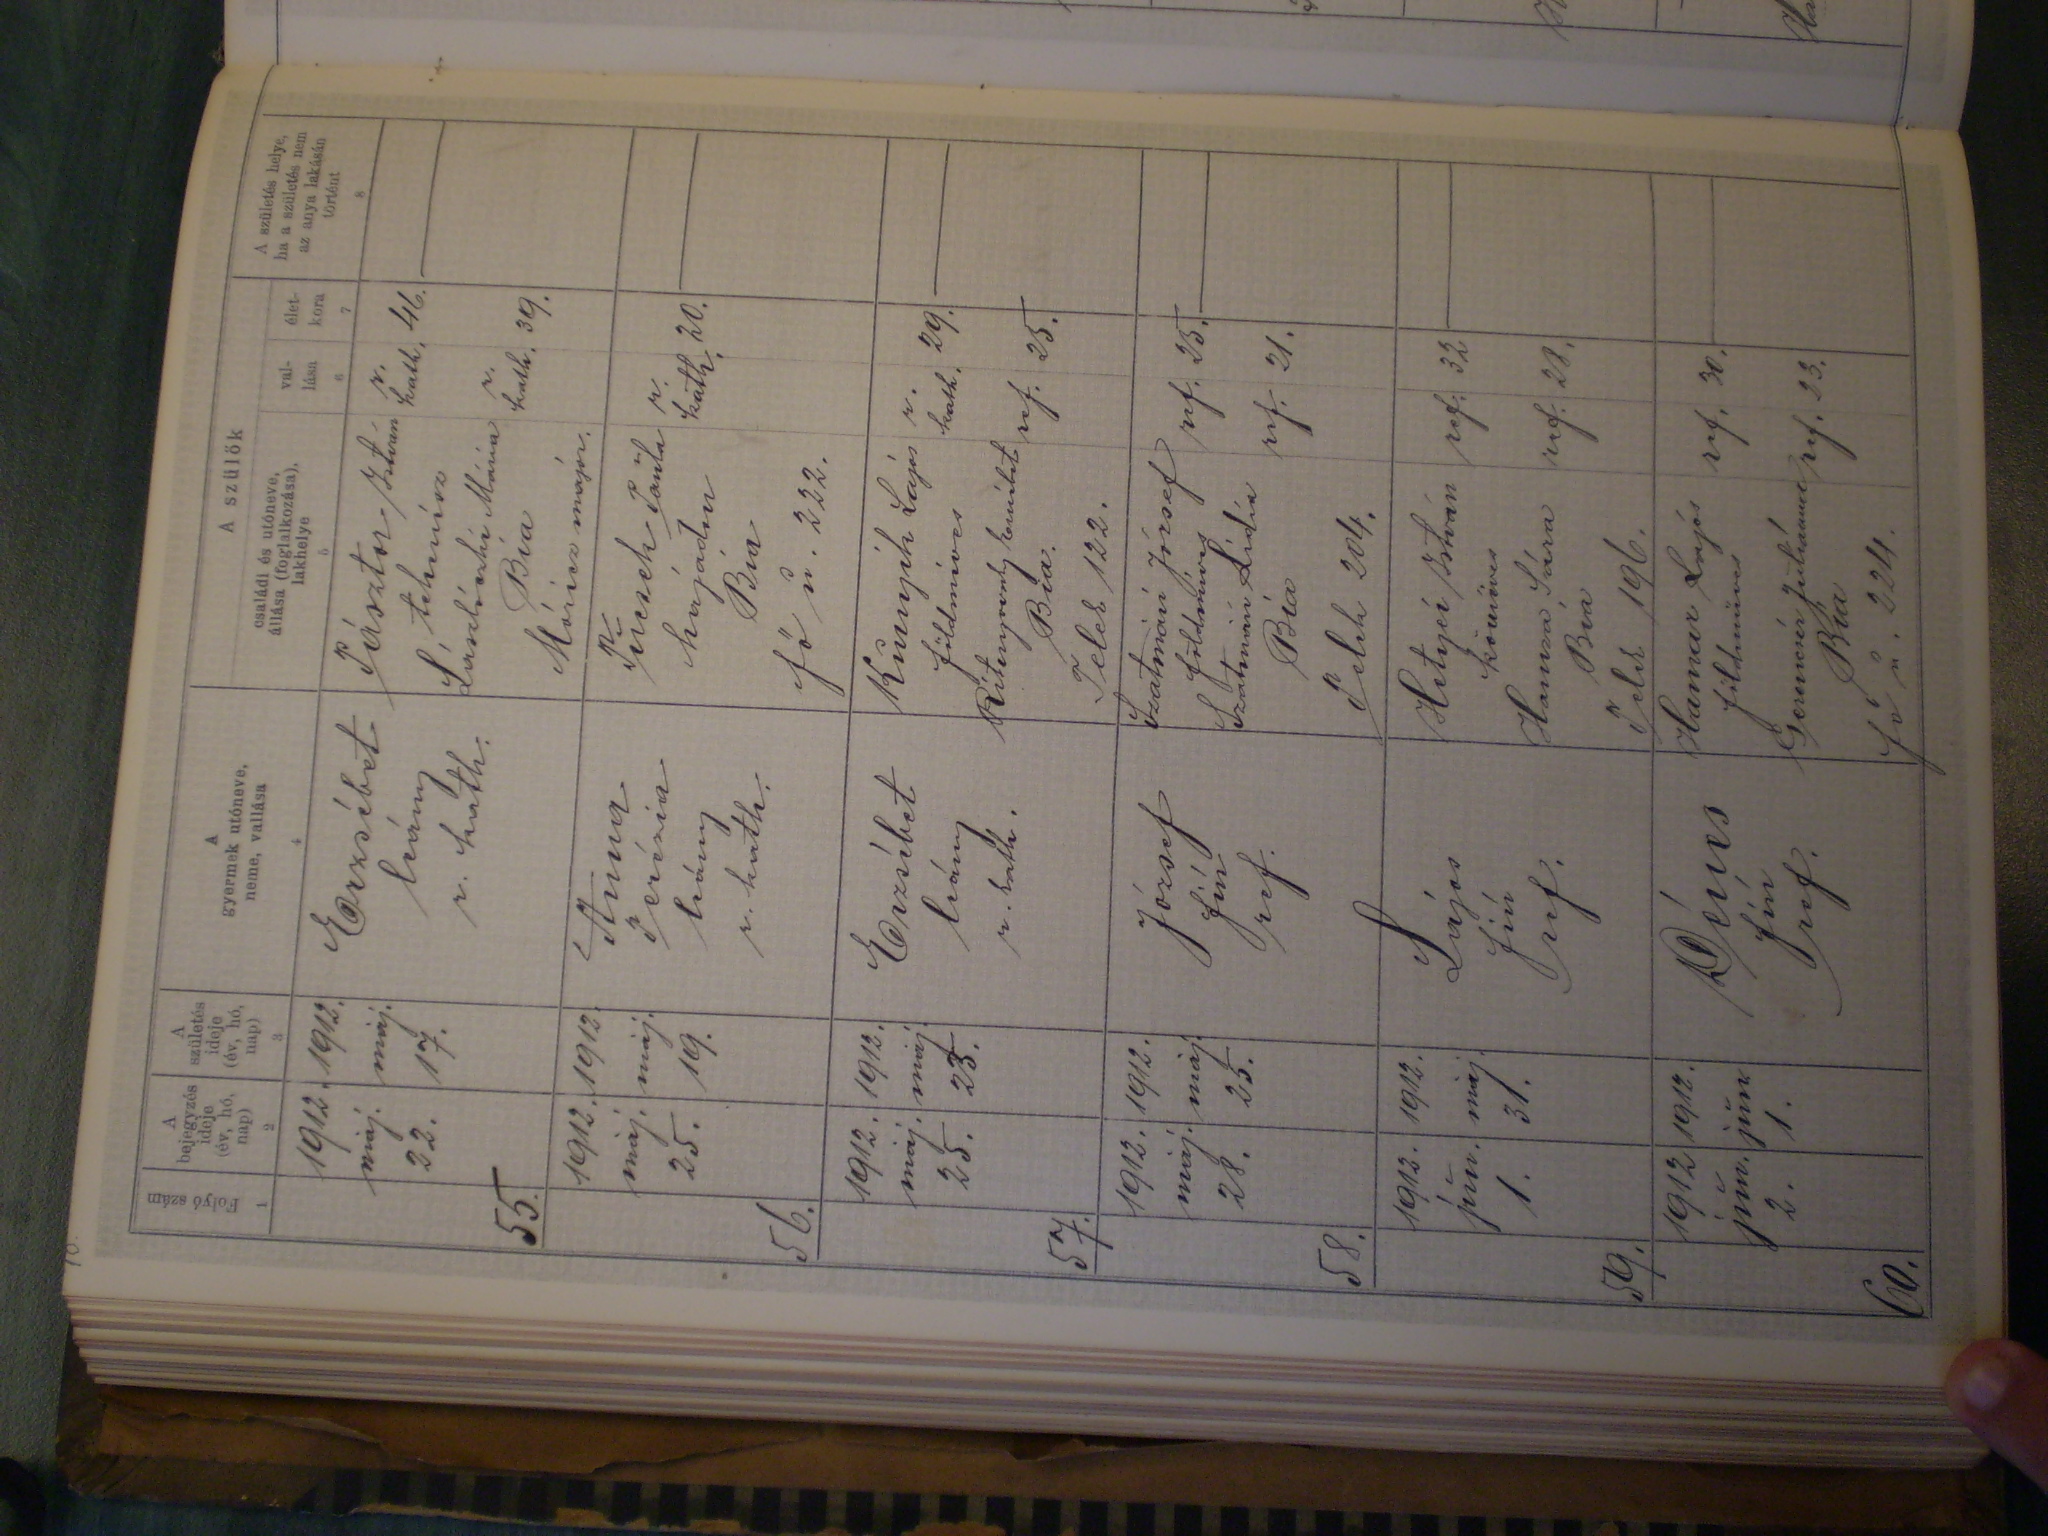 Folyó szám
A bejegyzés ideje (év, hó, nap)
A születés ideje (év, hó, nap)
A gyermek utóneve, neme, vallása
A szülők
családi és utóneve, állása (foglalkozása), lakhelye
vallása
életkora
A születés helye, ha a születés nem az anya lakásán történt
1
2
3
4
5
6
7
8
55.
1912. máj. 22.
1912. máj. 17.
Erzsébet
leány
r. kath.
Pásztor István
r. kath. 46.
tehenész
Mária
r. kath. 39.
Bia
Móricz major.
56.
1912. máj. 25.
1912. máj. 19.
Anna
Terézia
leány
r. kath.
r. kath. 20.
hajadon
Bia
fő u. 222.
57.
1912. máj. 25.
1912. máj. 23.
Erzsébet
leány
r. kath.
Lajos
r. kath. 29.
földmíves
ref. 25.
Bia.
Telek 122.
58.
1912. máj. 28.
1912. máj. 25.
József
fiú
ref.
Szatmári József
ref. 25.
földmíves
Szatmári Lídia
ref. 21.
Bia
Telek 204.
59.
1912. jún. 1.
1912. máj. 31.
Lajos
fiú
ref.
Hetyei István
ref. 32
kőmíves
Hamza Sára
ref. 28.
Bia
Telek 196.
60.
1912 jún. 2.
1912. jún 1.
Dénes
fiú
ref.
Hamar Lajos
ref. 30.
földmíves
Juliánna
ref. 23.
Bia
fő u. 224.